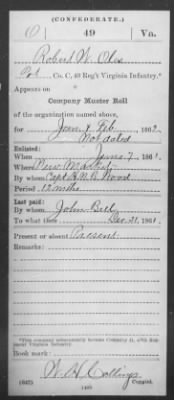 (CONFEDERATE.)
O 49 Va.
Robert W. Oles
Pvt Co. C, 49 Reg't Virginia Infantry.*
Appears on
Company Muster Roll
of the organization named above,
for Jan & Feb, 1862.
Not dated
Enlisted:
When June 7, 1861.
Where New Market
By whom Capt Wood
Period 12 months
Last paid:
By whom John Bell
To what time Dec. 31, 1861.
Present or absent Present
Remarks:
*This company subsequently became Company
Virginia Infantry.
Book mark:
W. H. Collins
(642) Copyist.